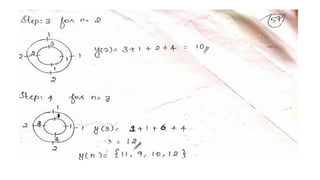 Step: 3 for n = 2
59
1
3
2 2 1 1
y(2) = 3 + 1 + 2 + 4 = 10
2
Step: 4 for n = 3
1
2 1
y(3) = 1 + 1 + 6 + 4
= 12
2
y(n) = {11, 9, 10, 12}